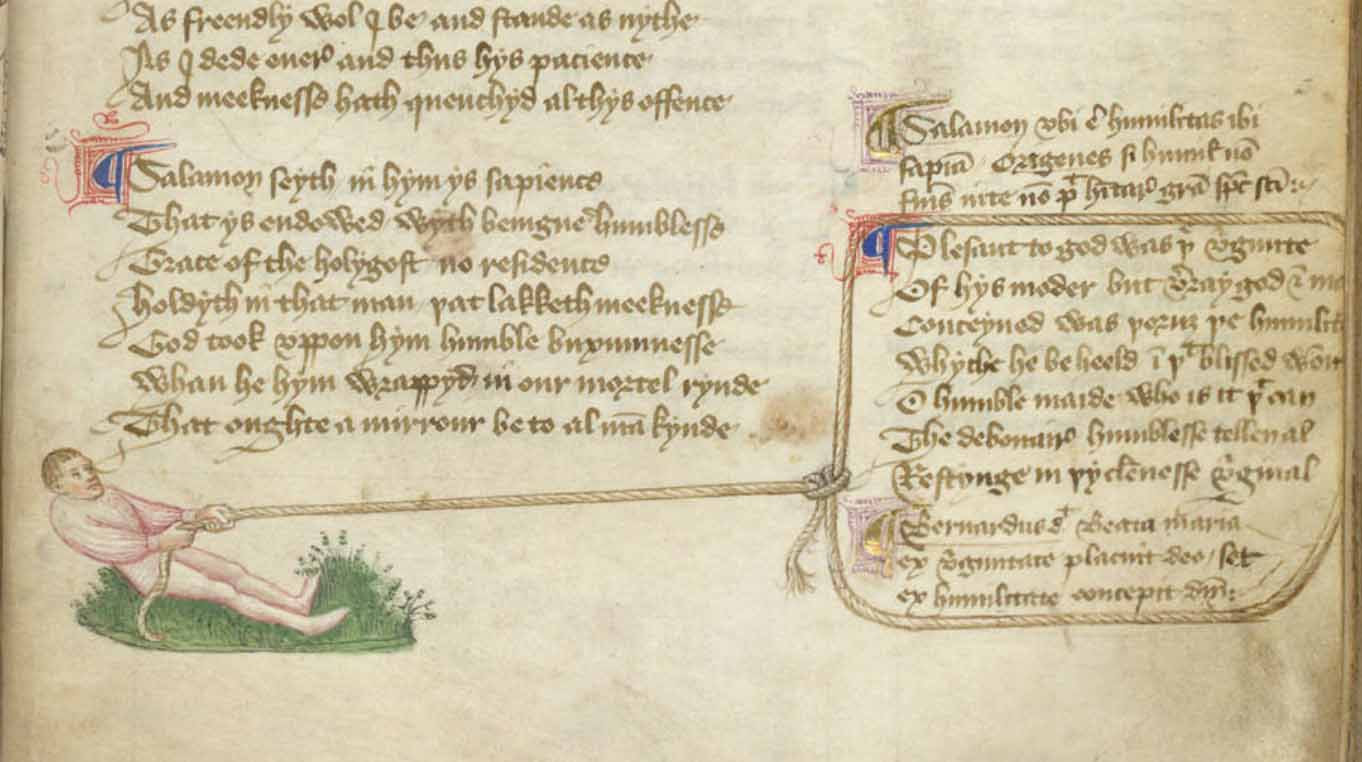 As freendly wol I be and stande as nythe
As I dede euer and thus hys pacience
And meeknesse hath quenchyd al thys offence
Salamon seyth in hym ys sapience
That ys endowed wyth benigne humblesse
Grace of the holygost no residence
Holdyth in that man þat lakketh meeknesse
God took vppon hym humble buxumnesse
Whan he hym wrappyd in our mortel rynde
That oughte a mirrour be to al mā kynde
Salamon vbi ē humilitas ibi
sapiā Origenes si humil nō
fu͡is nō hītaƀ grā spc scī
Plesant to god was þᵗ vginite
Of hys moder but veray god & ma
Conceyued was þoruȝ þe humilit
Whyche he beheeld ī þᵗ blissed
O humble maide who is it þᵗ can
The debonair humblesse tellen al
Restynge in þy clennesse vginal
Bernardus dᵗ Beata maria
ex vginitate placuit deo set
ex humilitate concepit dm̄